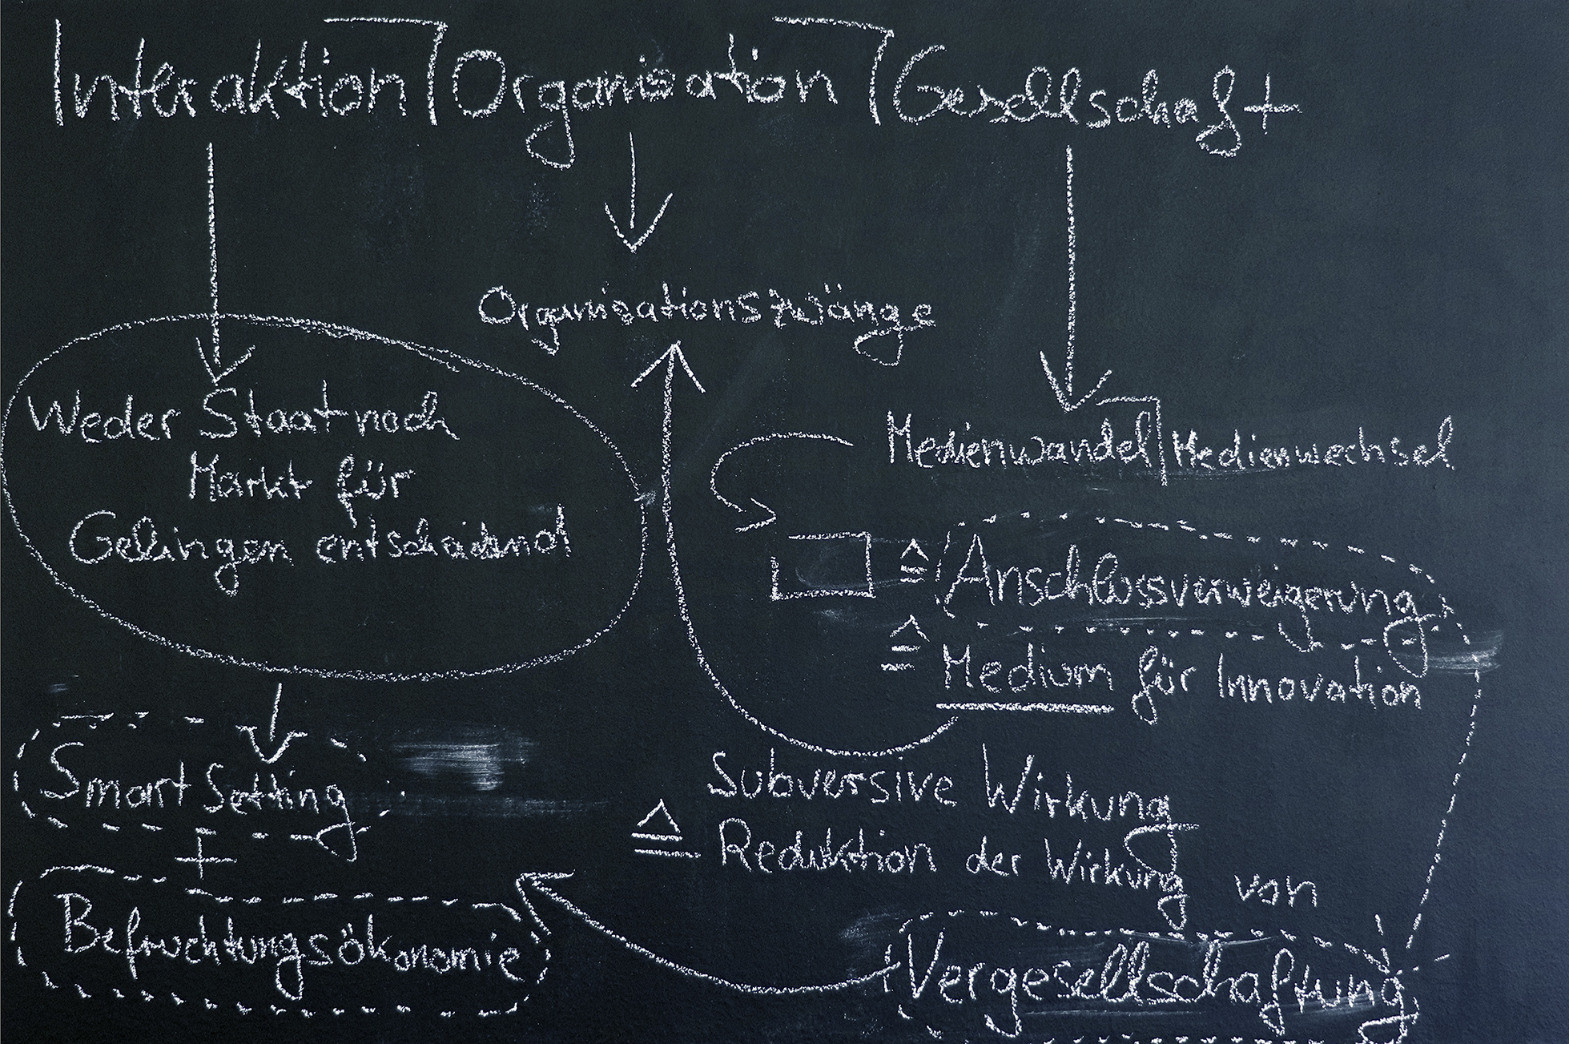 Interaktion Organisation Gesellschaft
Organisationszwänge
Weder Staat noch
Markt für
Gelingen entscheidend
Medienwandel Medienwechsel
≙ Anschlussverweigerung
≙ Medium für Innovation
Smart Setting
+
Befruchtungsökonomie
Subversive Wirkung
≙ Reduktion der Wirkung von
Vergesellschaftung